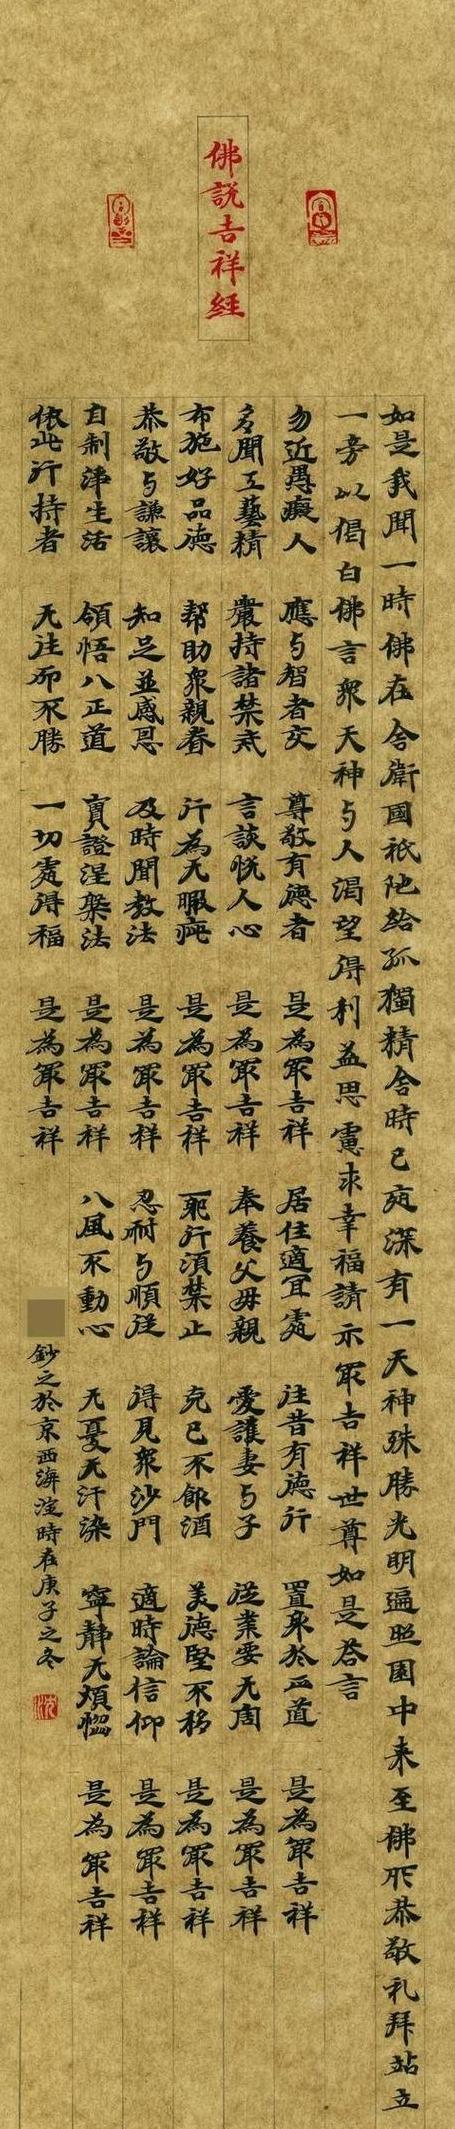 佛說吉祥經
如是我聞一時佛在舍衛國祇陀給孤獨精舍時已夜深有一天神殊勝光明遍照園中来至佛所恭敬礼拜站立
一旁以偈白佛言衆天神与人渴望得利益思慮求幸福請示冣吉祥世尊如是荅言
勿近愚癡人 應与智者交 尊敬有德者 是為冣吉祥 居住適宜處 往昔有德行 置身於正道 是為冣吉祥
多聞工藝精 嚴持諸禁戒 言談悅人心 是為冣吉祥 奉養父母親 愛護妻与子 從業要无害 是為冣吉祥
布施好品德 帮助衆親眷 行為无瑕疵 是為冣吉祥 邪行須禁止 克己不飲酒 美德堅不移 是為冣吉祥
恭敬与謙讓 知足並感恩 及時聞教法 是為冣吉祥 忍耐与順從 得見衆沙門 適時論信仰 是為冣吉祥
自制淨生活 領悟八正道 實證涅槃法 是為冣吉祥 八風不動心 无憂无汙染 寧静无煩惱 是為冣吉祥
依此行持者 无往而不勝 一切處得福 是為冣吉祥 鈔之於京西海淀時在庚子之冬